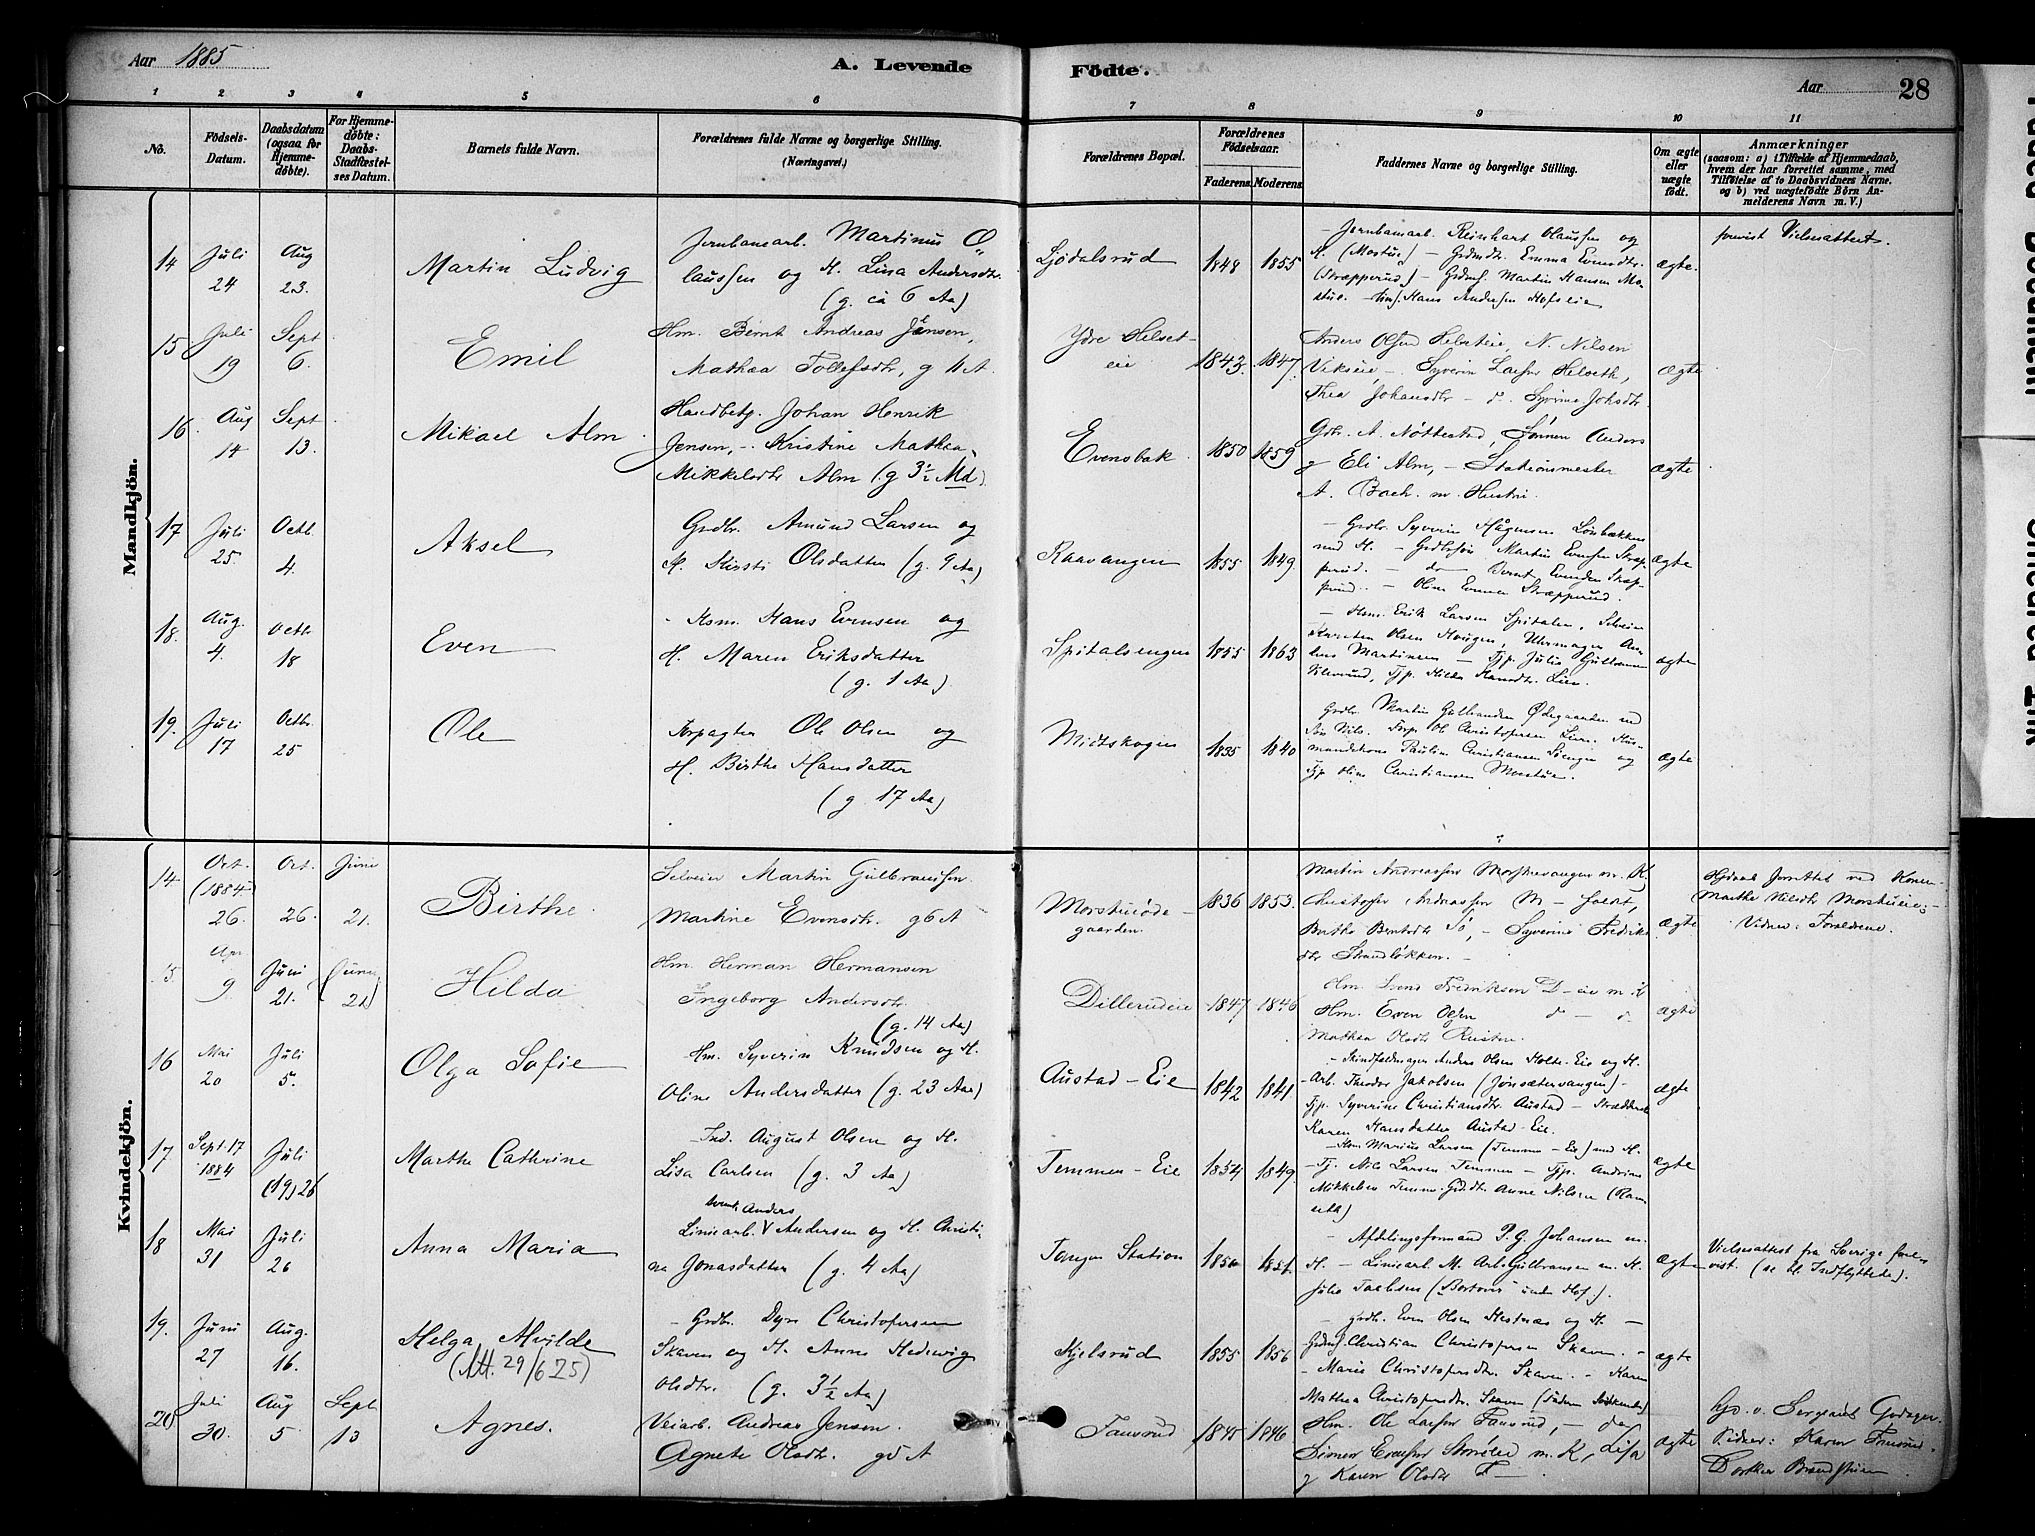 Aar 1885
A. Levende
Födte.
Aar
28
1 2 3 4 5 6 7 8 9 10 11
No.
Födsels-Datum.
Daabsdatum (ogsaa for Hjemme-döbte).
For Hjemme-döbte: Daabs-Stadfæstel-ses Datum.
Barnets fulde Navn.
Forældrenes fulde Navne og borgerlige Stilling.
(Næringsvei.)
Forældrenes Bopæl.
Forældrenes Födselsaar.
Faderens. Moderens.
Faddernes Navne og borgerlige Stilling.
Om ægte eller uægte födt.
Anmærkninger
(saasom: a) i Tilfælde af Hjemmedaab,
hvem der har forrettet samme, med
Tilföielse af to Daabsvidners Navne,
og b) ved uægtefödte Börn An-
melderens Navn m. V.)
Mandkjön.
14 Juli 24 Aug 23. Martin Ludvig
Jernbanearb. Martinus O-
laussen og H. Lisa Andersdtr.
(g. ca 6 Aa)
Ljödalsrud 1848 1855
Jernbanearb. Reinhart Olaussen og
H. (Mostue) – Grdmdtr. Emma Evensdtr.
(Stræpperud) – Grdms. Martin Hansen Mo-
stue. Hans Andersen Hofseie
ægte.
forevist Vielsesattest.
15 Juli 19 Sept 6. Emil
Hm. Bernt Andreas Jensen,
Mathea Tollefsdtr, g 11 A.
Ydre Helset-
eie
1843. 1847.
Anders Olsen Helseteie, N. Nilsen
Vikseie – Syverin Larsen Helseth,
Thea Johansdtr – d. Syverine Johsdtr.
ægte
16. Aug 14 Sept 13. Mikael Alm.
Handbetj. Johan Henrik
Jensen, – Kristine Mathea
Mikkelsdtr Alm (g 3½ Md)
Evensbak. 1850 1859
Gdr. A. Nöttestad, Sönnen Anders
og Eli Alm, – Stationsmester
A. Bach. m. Hustru.
ægte
17 Juli 25. Octb. 4. Aksel
Grdbr. Amund Larsen og
H. Kirsti Olsdatter (g. 9 Aa)
Raavangen 1855 1849.
– Grdbr. Syverin Hågensen Lönbækken
med H. – Grdbrsön Martin Evensen Stræp-
perud. – do Bernt Evensen Stræp-
perud. – Oline Evensen Stræpperud.
ægte
18. Aug. 4. Octbr 18 Even
Hsm. Hans Evensen og
H. Maren Eriksdatter
(g. 1 Aa)
Spitalsengen 1855 1863
– Hsm. Erik Larsen Spitalen, Selveier
Karsten Olsen Haugen, Uhrmager An-
Martinsen – Tjp. Julie Gulbransen
Tjp. Hilda Hansdtr. Lien.
ægte
19. Juli 17 Octbr. 25 Ole
Forpagter Ole Olsen og
H. Birthe Hansdatter
(g. 17 Aa)
Midtskogen 1835 1840
Grdbr. Martin Gulbrandsen Ödegaarden med
Sön Nils. Forp. Ole Christophersen Lien. Hus-
mandskone Pauline Christiansen Söengen og
Tjp Oline Christiansen Morstue.
ægte
Kvindekjön.
14 Oct. (1884) 26 Oct. 26. Juni 21. Birthe.
Selveier Martin Gulbranssen
Martine Evensdtr. g 6 A
Morstueöde-
gaarden.
1836 1853.
Martin Andreassen Morstuevangen m. K
Christoffer Andreassen M – foldt,
Berthe Berntsdtr do, – Syverine Fredriks
dtr Strandlökken. –
ægte
Hjdaab forrettet ved Konen
Marthe Nilsdtr Morstueeie; –
Vidner: Forældrene.
5. Apr. 9 Juni 21. (Juni 21) Hilda
Hm. Herman Hermansen
Ingeborg Andersdtr.
(g. 14 Aa)
Dillerudeie 1847 1846
Hm. Svend Fredriksen D–eie m. K
Hm. Even Olsen d – d.
Mathea Olsdtr Rusten.
ægte
16 Mai 20 Juli 5. Olga Sofie
Hm. Syverin Knudsen og H.
Oline Andersdatter (g. 23 Aa)
Austad–Eie 1842 1841.
– Skindfeldmager Anders Olsen Holte-Eie og H.
– Arb. Theodor Jakobsen (Jönsætervangen) –
Tjp. Syverine Christiansdtr. Austad –
Karen Hansdatter Austad-Eie.
ægte
17 Sept. 17 1884 Juli (19) 26 Marthe Cathrine
Ind. August Olsen og H.
Lisa Carlsen (g. 3 Aa)
Temmen–Eie 1854 1849.
– Hsm Marius Larsen (Temmen-Eie) med H.
– Tj. Nils Larsen Temmen – Tjp. Andrine
Mikkelsen Temmen Grdmdt. Anne Nilsen (Ram-
seth)
ægte
18 Mai 31 Juli 26 Anna Maria
Anders
Liniearb. V Andersen og H. Christi-
na Jonasdatter (g. 4 Aa)
Tangen Station 1850 1851.
– Afdelingsformand P. G. Johansen m.
H. – Liniearb. M. Arb. Gulbransen m. H.
Julie Taalesen (Bortovri under Hof.).
ægte
Vielsesattest fra Sverige fore-
vist. (se bl. Indflyttede).
19. Juni 27 Aug. 16. Helga Alvilde
(Att. 29/6 25)
– Grdbr. Dyre Christophersen
Skaven og H. Anne Hedevig
Olsdtr. (g. 3½ Aa)
Kjelsrud 1855 1856
– grdbr. Even Olsen Hestnæs og H. –
Grdms. Christian Christophersen Skaven. –
– Marie Christophersdtr. Skaven. – Karen
Mathea Christophersdtr. Skaven
ægte
20 Juli 30. Aug 5 Sept 13 Agnes.
Veiarb. Andreas Jensen.
Agnete Olsdtr. g 5 A
Fausrud 1845 1846
Hm. Ole Larsen Fausrud, – do
Simen Evensen m. K, Lisa
og Karen Olsdtr F –
ægte
hjd. v. Sergeant Godager.
Vidner: Karen Fausrud.
Dorthea